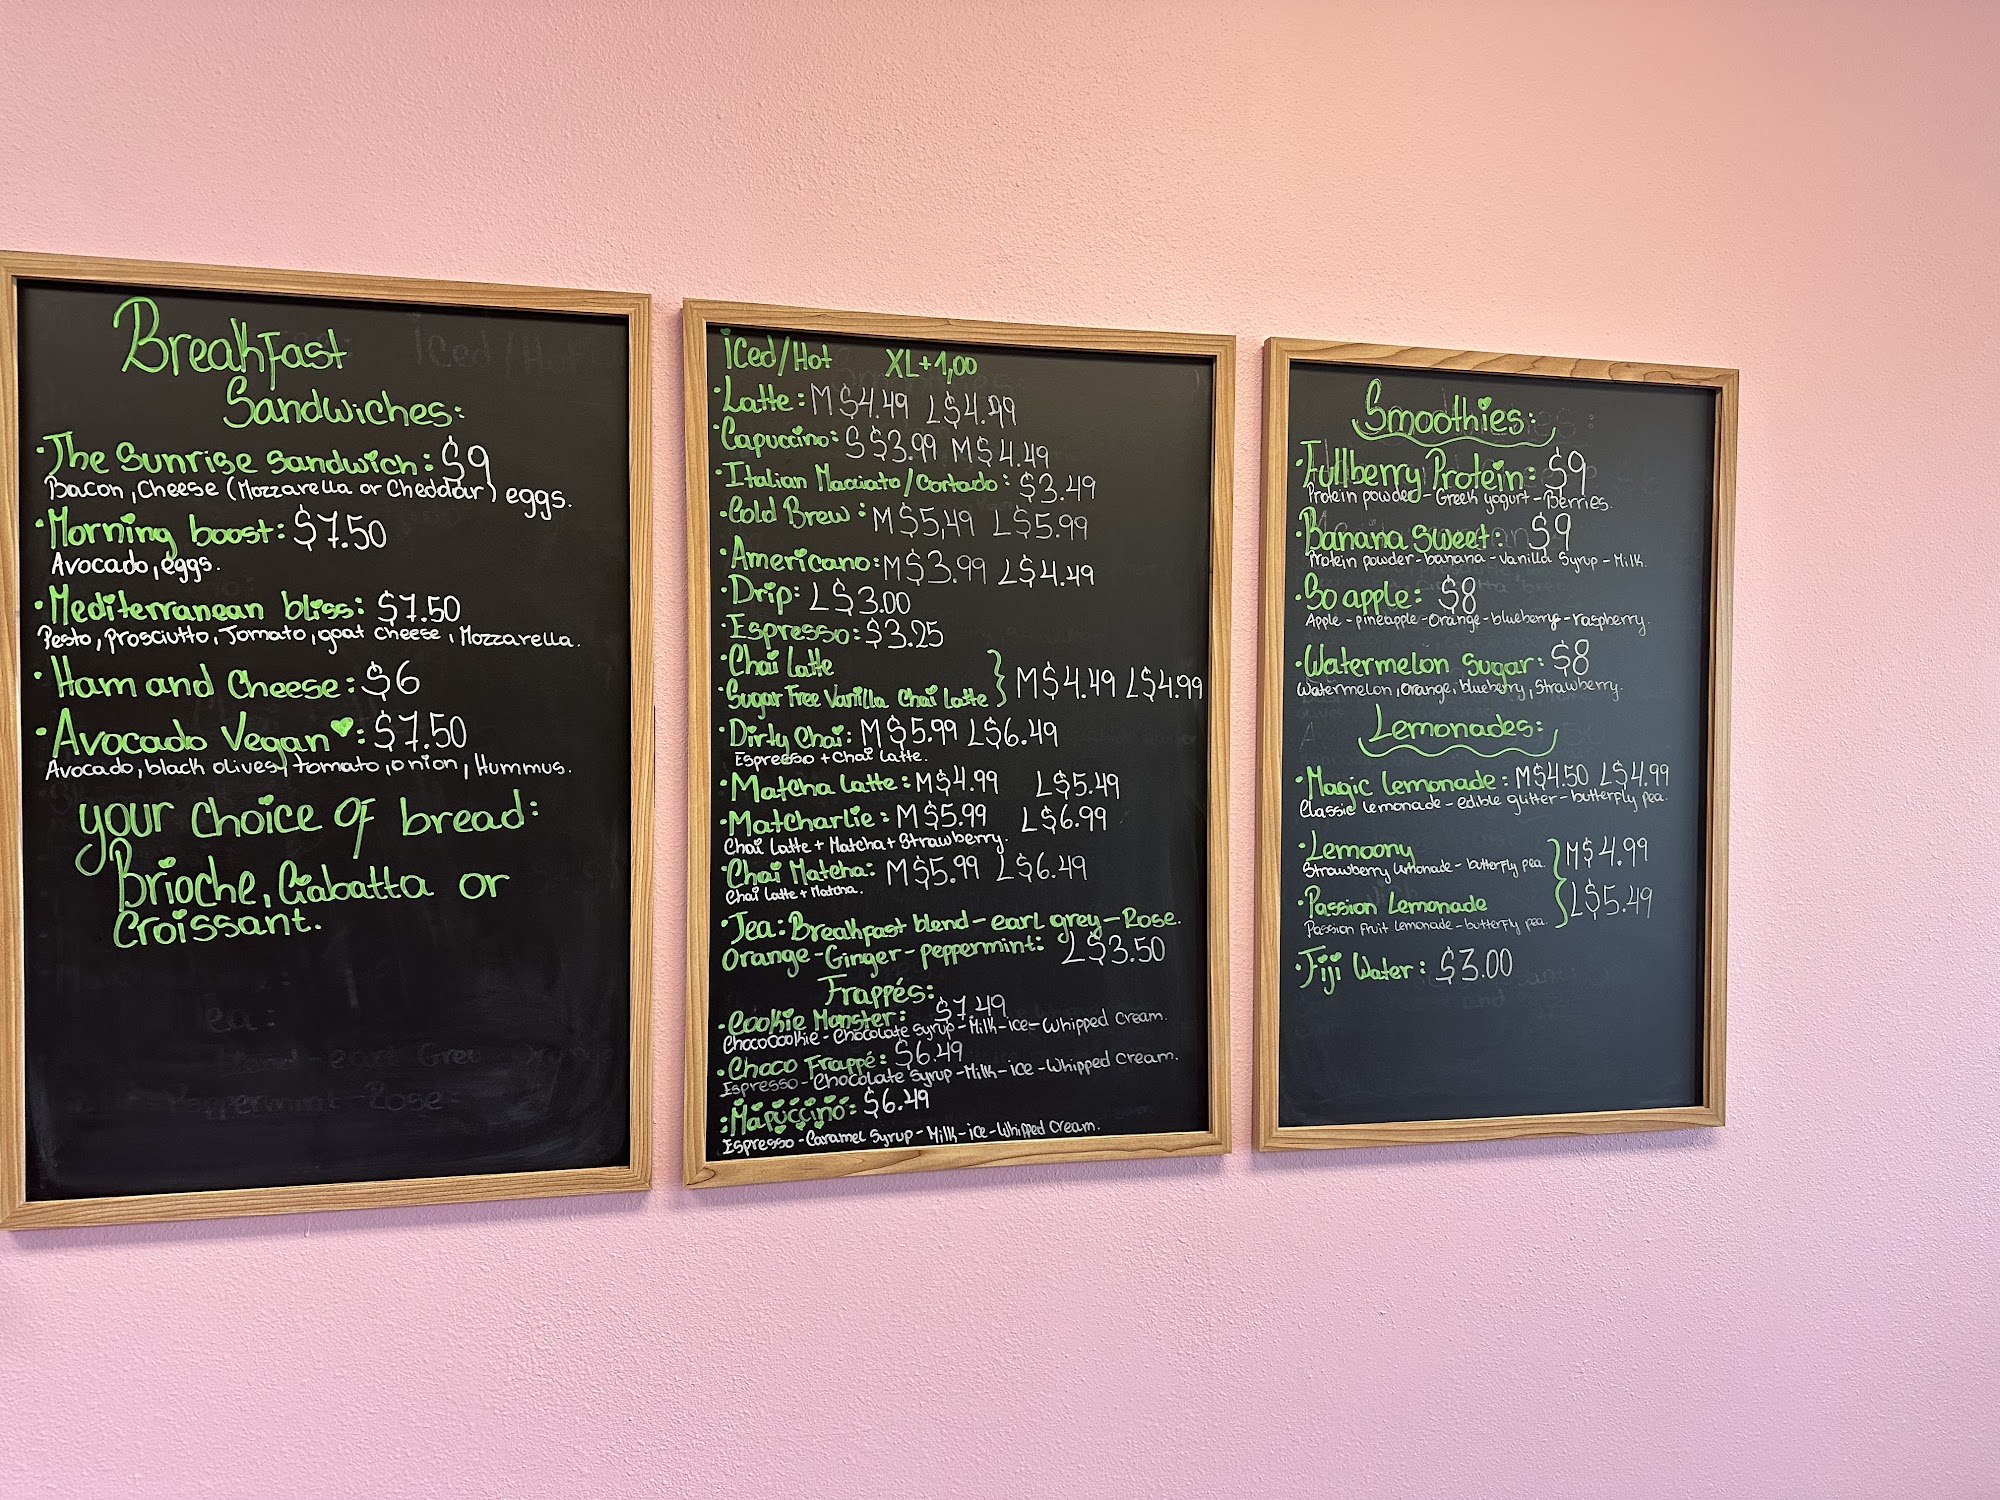 Breakfast
Sandwiches:
• The Sunrise Sandwich: $9
Bacon, Cheese (Mozzarella or Cheddar) eggs.
• Morning boost: $7.50
Avocado, eggs.
• Mediterranean bliss: $7.50
Pesto, Prosciutto, Tomato, goat cheese, Mozzarella.
• Ham and Cheese: $6
• Avocado Vegan: $7.50
Avocado, black olives, tomato, onion, Hummus.
your choice of bread:
Brioche, Ciabatta or
Croissant.
Iced/Hot XL+1,00
• Latte: M $4.49 L $4.99
• Capuccino: S $3.99 M $4.49
• Italian Macciato/Cortado: $3.49
• Cold Brew: M $5,49 L $5.99
• Americano: M $3.99 L $4.49
• Drip: L $3.00
• Espresso: $3.25
• Chai Latte
• Sugar Free Vanilla Chai Latte } M $4.49 L $4.99
• Dirty Chai: M $5.99 L $6.49
Espresso + Chai Latte.
• Matcha Latte: M $4.99 L $5.49
• Matcharlie: M $5.99 L $6.99
Chai Latte + Matcha + Strawberry.
• Chai Matcha: M $5.99 L $6.49
Chai Latte + Matcha.
• Tea: Breakfast blend - earl grey - Rose.
Orange - Ginger - peppermint: L $3.50
Frappés:
• Cookie Monster: $7.49
Chococookie - Chocolate Syrup - Milk - ice - Whipped Cream.
• Choco Frappé: $6.49
Espresso - Chocolate Syrup - Milk - ice - Whipped Cream.
• Mapuccino: $6.49
Espresso - Caramel Syrup - Milk - ice - Whipped Cream.
Smoothies:
• Fullberry Protein: $9
Protein powder - Greek yogurt - Berries.
• Banana Sweet: $9
Protein powder - banana - Vanilla Syrup - Milk.
• So apple: $8
Apple - pineapple - Orange - blueberry - raspberry.
• Watermelon Sugar: $8
Watermelon, Orange, blueberry, Strawberry.
Lemonades:
• Magic Lemonade: M $4.50 L $4.99
Classic lemonade - edible glitter - butterfly pea.
• Lemoony } M $4.99
Strawberry Lemonade - butterfly pea.
• Passion Lemonade L $5.49
Passion fruit Lemonade - butterfly pea.
• Fiji Water: $3.00